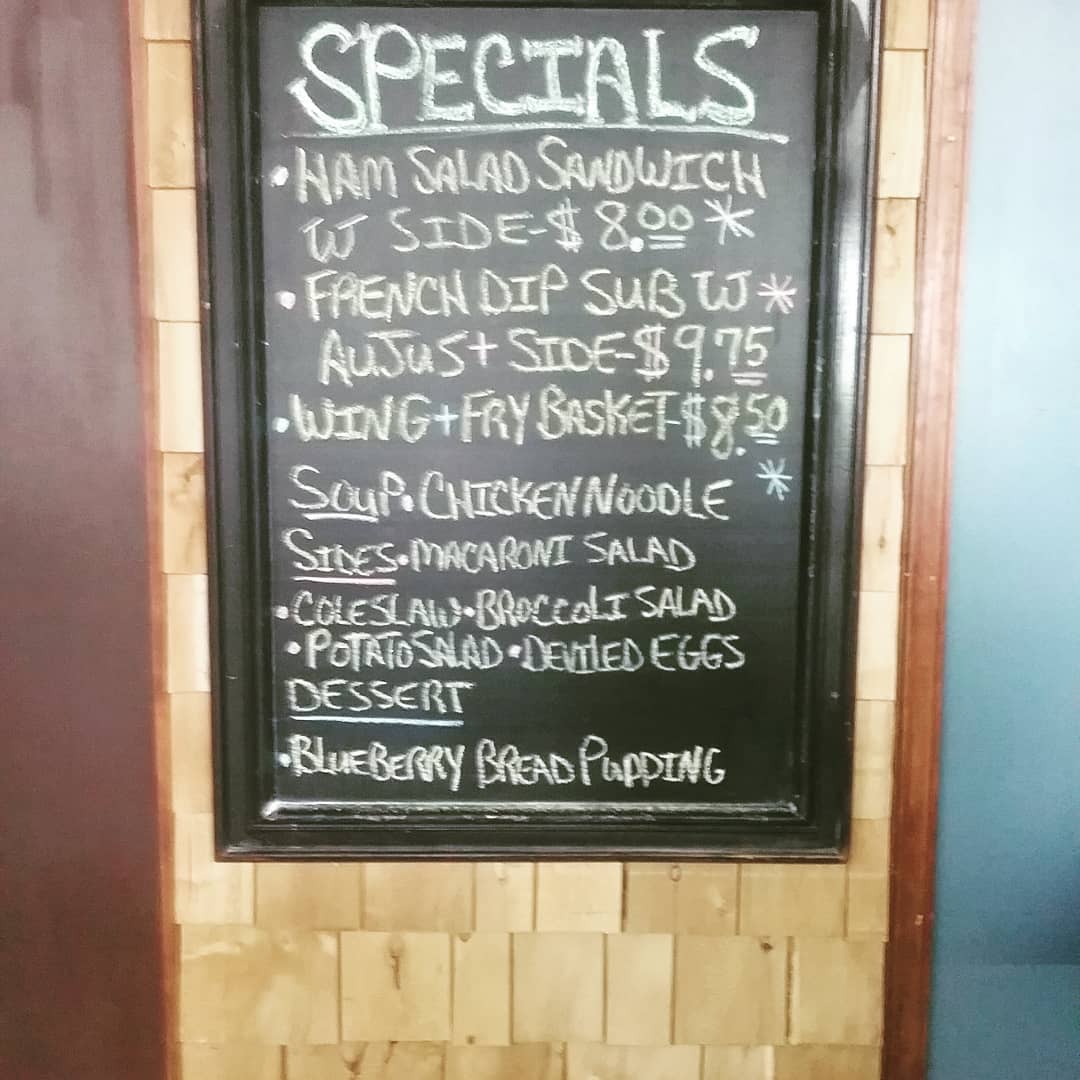 SPECIALS
• HAM SALAD SANDWICH
W SIDE-$8.00 *
• FRENCH DIP SUB W *
AUJUS + SIDE-$9.75
• WING + FRY BASKET-$8.50
*
SOUP • CHICKEN NOODLE
SIDES • MACARONI SALAD
• COLESLAW • BROCCOLI SALAD
• POTATO SALAD • DEVILED EGGS
DESSERT
• BLUEBERRY BREAD PUDDING